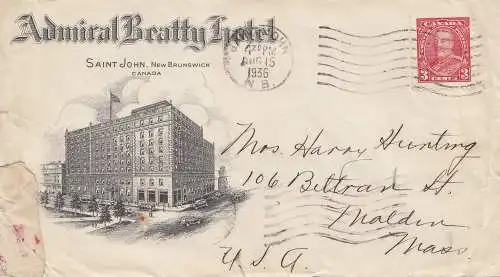 Admiral Beatty Hotel
SAINT JOHN, NEW BRUNSWICK
CANADA
PM
AUG 15
1936
N.B.
CANADA
3 3
Mrs. Harry Hunting
106 Beltran St.
Malden
Mass.
U.S.A.